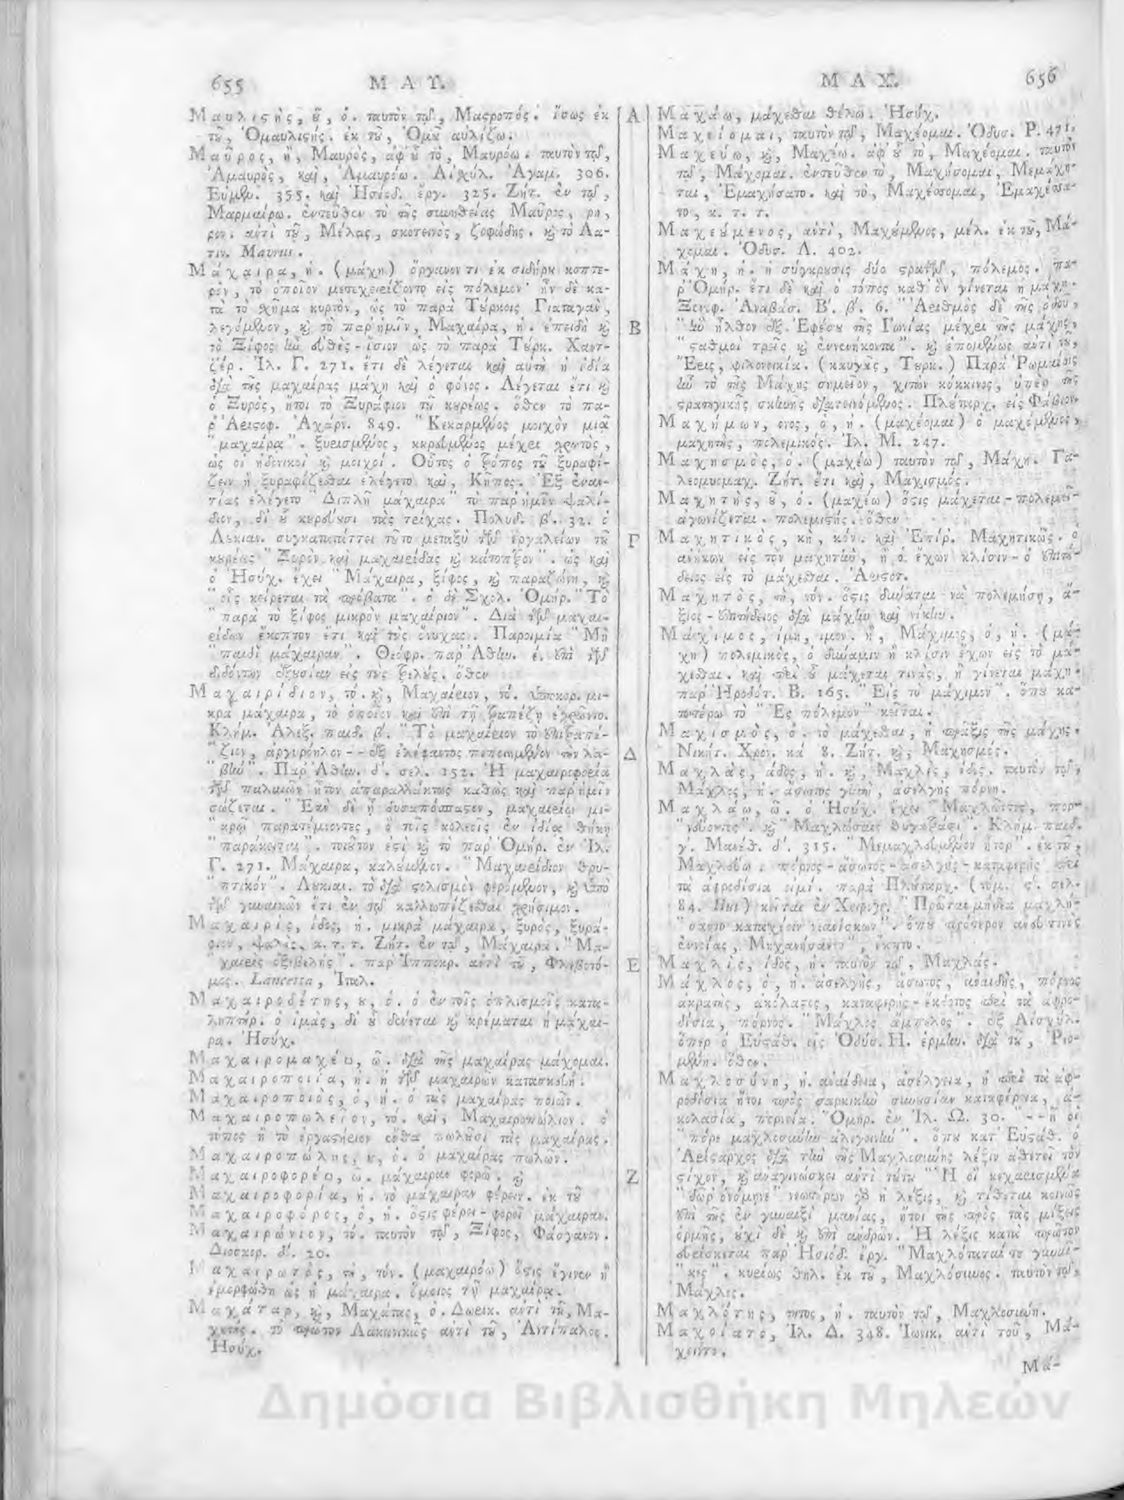 655 ΜΑΥ.
Μαυλιστὴς, οῦ, ὁ. ταυτὸν τῷ, Μαστροπός. ἴσως ἐκ
τοῦ, Ὁμαυλιστής. ἐκ τοῦ, Ὁμοῦ αὐλίζω.
Μαῦρος, ἢ, Μαυρὸς, ἀφ' οὗ τὸ, Μαυρόω. ταυτὸν τῷ,
Ἀμαυρὸς, καὶ, Ἀμαυρόω. Αἰσχύλ. Ἀγαμ. 306.
Εὐμεν. 355. καὶ Ἡσιόδ. ἔργ. 325. Ζήτ. ἐν τῷ,
Μαρμαίρω. ἐντεῦθεν τὸ τῆς συνηθείας Μαῦρος, ρη,
ρον. αὐτὶ τοῦ, Μέλας, σκοτεινὸς, ζοφώδης. καὶ τὸ Λα-
τιν. Maurus.
Μάχαιρα, ἡ. (μάχη) ὄργανον τι ἐκ σιδήρου κοπτε-
ρὸν, τὸ ὁποῖον μετεχειρίζοντο εἰς πόλεμον· ἦν δὲ κα-
τὰ τὸ σχῆμα κυρτὸν, ὡς τὸ παρὰ Τούρκοις Γιαταγὰν,
λεγόμενον, καὶ τὸ παρ' ἡμῖν, Μαχαίρα, ἡ. ἐπειδὴ καὶ
τὸ Ξίφος ἦν εὐθὺς - ἴσιον ὡς τὸ παρὰ Τούρκ. Χαντ-
ζέρ. Ἰλ. Γ. 271. ἔτι δὲ λέγεται καὶ αὐτὴ ἡ ἰδία
διὰ τῆς μαχαίρας μάχη καὶ ὁ φόνος. Λέγεται ἔτι καὶ
ὁ Ξυρὸς, ἤτοι τὸ Ξυράφιον τοῦ κουρέως. ὅθεν τὸ πα-
ρ' Ἀριστοφ. Ἀχάρν. 849. "Κεκαρμένος μοιχὸν μιᾷ
"μαχαίρᾳ". ξυρισμένος, κουρευμένος μέχρι χρωτὸς,
ὡς οἱ ἡδονικοὶ καὶ μοιχοί. Οὗτος ὁ τρόπος τοῦ ξυραφί-
ζειν ἢ ξυραφίζεσθαι ἐλέγετο καὶ, Κῆπος. Ἐξ ἐναν-
τίας ἐλέγετο "Διπλῆ μάχαιρα" τὸ παρ' ἡμῖν ψαλί-
διον, δι' οὗ κουρεύουσι τὰς τρίχας. Πολυδ. β'. 32. ὁ
Λουκιαν. συγκαταπίπτει τοῦτο μεταξὺ τῶν ἐργαλείων τοῦ
κουρέως "Ξυρὸν καὶ μαχαιρίδας καὶ κάτοπτρον". ὡς καὶ
ὁ Ἡσύχ. ἔχει "Μάχαιρα, ξίφος, καὶ παραζώνη, καὶ
"οἷς κείρεται τὰ πρόβατα". ὁ δὲ Σχολ. Ὁμήρ. "Τὸ
"παρὰ τὸ ξίφος μικρὸν μαχαίριον". Διὰ τῶν μαχαι-
ρίδων ἔκοπτον ἔτι καὶ τοὺς ὄνυχας. Παροιμία "Μὴ
"παιδὶ μάχαιραν". Θεόφρ. παρ' Ἀθήν. ε. ἐπὶ τῶν
διδόντων ἐξουσίαν εἰς τοὺς τρελούς. ὅθεν
Μαχαιρίδιον, τό. καὶ, Μαχαίριον, τό. ὑποκορ. μι-
κρὰ μάχαιρα, τὸ ὁποῖον καὶ ἐπὶ τῇ τραπέζῃ ἐχρῶντο.
Κλήμ. Ἀλεξ. παιδ. β'. "Τὸ μαχαίριον τὸ ἐπιτραπέ-
"ζιον, ἀργυρόηλον - - ἐξ ἐλέφαντος πεποιημένον τὴν λα-
"βὴν". Παρ' Ἀθήν. δ'. σελ. 152. Ἡ μαχαιροφορία
τῶν παλαιῶν ἦτον ἀπαραλλάκτως καθὼς καὶ παρ' ἡμῖν
σώζεται. "Ἐὰν δὲ ᾖ δυσαπόσπαστον, μαχαιρίῳ μι-
"κρῷ παρατέμνοντες, ὃ τοῖς κολεοῖς ἐν ἰδίᾳ θήκῃ
"παράκειται". τοιοῦτον ἐστὶ καὶ τὸ παρ' Ὁμήρ. ἐν Ἰλ.
Γ. 271. Μάχαιρα, καλούμενον. "Μαχαιρίδιον θρυ-
"πτικὸν". Λουκιαν. τὸ διὰ στολισμὸν φερόμενον, καὶ ὑπὸ
τῶν γυναικῶν ἔτι ἐν τῷ καλλωπίζεσθαι χρήσιμον.
Μαχαιρὶς, ίδος, ἡ. μικρὰ μάχαιρα, ξυρὸς, ξυρά-
φιον, ψαλὶς, κ. τ. τ. Ζήτ. ἐν τῷ, Μάχαιρα. "Μα-
"χαιρὶς ὀξυβελὴς". παρ' Ἱπποκρ. αὐτὶ τοῦ, Φλεβοτό-
μος. Lancetta, Ἰταλ.
Μαχαιροδέτης, ου, ὁ. ὁ ἐν τοῖς ὁπλισμοῖς κατα-
ληπτήρ. ὁ ἱμὰς, δι' οὗ δένεται καὶ κρέμαται ἡ μάχαι-
ρα. Ἡσύχ.
Μαχαιρομαχέω, ῶ. διὰ τῆς μαχαίρας μάχομαι.
Μαχαιροποιία, ἡ. ἡ τῶν μαχαιρῶν κατασκευή.
Μαχαιροποιὸς, ὁ, ἡ. ὁ τὰς μαχαίρας ποιῶν.
Μαχαιροπωλεῖον, τό. καὶ, Μαχαιροπώλιον. ὁ
τόπος ἢ τὸ ἐργαστήριον ἔνθα πωλοῦσι τὰς μαχαίρας.
Μαχαιροπώλης, ου, ὁ. ὁ μαχαίρας πωλῶν.
Μαχαιροφορέω, ῶ. μάχαιραν φέρω. καὶ
Μαχαιροφορία, ἡ. τὸ μάχαιραν φέρειν. ἐκ τοῦ
Μαχαιροφόρος, ὁ, ἡ. ὅστις φέρει - φορεῖ μάχαιραν.
Μαχαιρώνιον, τό. ταυτὸν τῷ, Ξίφος, Φάσγανον.
Διοσκορ. δ'. 20.
Μαχαιρωτὸς, τὴ, τόν. (μαχαιρόω) ὅστις ἔγινεν ἢ
ἐμορφώθη ὡς ἡ μάχαιρα. ὅμοιος τῇ μαχαίρᾳ.
Μαχάταρ, καὶ, Μαχάτας, ὁ. Δωρικ. αὐτὶ τοῦ, Μα-
χητής. τὸ πρῶτον Λακωνικῶς αὐτὶ τοῦ, Ἀντίπαλος.
Ἡσύχ.
Α
Β
Γ
Δ
Ε
Ζ
ΜΑΧ. 656
Μαχάω, μάχεσθαι θέλω. Ἡσύχ.
Μαχείομαι, ταυτὸν τῷ, Μαχέομαι. Ὀδυσ. Ρ. 471.
Μαχεύω, καὶ, Μαχέω. ἀφ' οὗ τὸ, Μαχέομαι. ταυτὸν
τῷ, Μάχομαι. ἐντεῦθεν τὸ, Μαχήσομαι, Μεμάχη-
ται, Ἐμαχήσατο. καὶ τὸ, Μαχέσομαι, Ἐμαχέσα-
το, κ. τ. τ.
Μαχεύμενος, αὐτὶ, Μαχούμενος, μέλ. ἐκ τοῦ, Μά-
χομαι. Ὀδυσ. Λ. 402.
Μάχη, ἡ. ἡ σύγκρουσις δύο στρατῶν, πόλεμος. πα-
ρ' Ὁμήρ. ἔτι δὲ καὶ ὁ τόπος καθ' ὃν γίνεται ἡ μάχη.
Ξενοφ. Ἀναβάσ. Β'. β'. 6. "Ἀριθμὸς δὲ τῆς ὁδοῦ,
"ἣν ἦλθον ἐξ Ἐφέσου τῆς Ἰωνίας μέχρι τῆς μάχης,
"σταθμοὶ τρεῖς καὶ ἐννενήκοντα". καὶ ἑπομένως αὐτὶ τοῦ,
Ἔρις, φιλονεικία. (καυγᾶς, Τουρκ.) Παρὰ Ῥωμαίοις
ἦν τὸ τῆς Μάχης σημεῖον, χιτὼν κόκκινος, ὑπὲρ τῆς
στρατηγικῆς σκηνῆς διατεινόμενος. Πλούταρχ. εἰς Φάβιον.
Μαχήμων, ονος, ὁ, ἡ. (μαχέομαι) ὁ μαχόμενος,
μαχητὴς, πολεμικός. Ἰλ. Μ. 247.
Μαχησμὸς, ὁ. (μαχέω) ταυτὸν τῷ, Μάχη. Γα-
λεομυομαχ. Ζήτ. ἔτι καὶ, Μαχισμός.
Μαχητὴς, οῦ, ὁ. (μαχέω) ὅστις μάχεται - πολεμεῖ -
ἀγωνίζεται. πολεμιστής. ὅθεν
Μαχητικὸς, κὴ, κόν. καὶ Ἐπίρ. Μαχητικῶς. ὁ
ἀνήκων εἰς τὸν μαχητὴν, ἢ ὁ ἔχων κλίσιν - ὁ ἐπιτή-
δειος εἰς τὸ μάχεσθαι. Ἀριστοτ.
Μαχητὸς, τὴ, τόν. ὅστις δύναται νὰ πολεμήσῃ, ἄ-
ξιος - ἐπιτήδειος διὰ μάχην καὶ νίκην.
Μάχιμος, ίμη, ιμον. ἢ, Μάχιμος, ὁ, ἡ. (μά-
χη) πολεμικὸς, ὁ δύναμιν ἢ κλίσιν ἔχων εἰς τὸ μά-
χεσθαι. καὶ περὶ οὗ μάχεται τινὰς, ἢ γίνεται μάχη.
παρ' Ἡροδότ. Β. 165. "Εἰς τὸ μάχιμον". ὅπου κα-
τωτέρω τὸ "Ἐς πόλεμον" κεῖται.
Μαχισμὸς, ὁ. τὸ μάχεσθαι, ἡ πρᾶξις τῆς μάχης.
Νικήτ. Χρον. κα' 8. Ζήτ. καὶ, Μαχησμός.
Μαχλὰς, άδος, ἡ. καὶ, Μαχλὶς, ίδος. ταυτὸν τῷ,
Μάχλος, ἡ. ἄσωτος γυνὴ, ἀσελγὴς πόρνη.
Μαχλάω, ῶ. ὁ Ἡσύχ. ἔχει "Μαχλῶντες, πορ-
"νεύοντες". καὶ "Μαχλώσαις θυγατράσι". Κλήμ. παιδ.
γ. Μανέθ. δ'. 315. "Μεμαχλευμένον ἦτορ". ἐκ τοῦ,
Μαχλεύω. πόρνος - ἄσωτος - ἀσελγὴς - καταφερὴς περὶ
τὰ ἀφροδίσια εἰμί. παρὰ Πλουτάρχ. (τόμ. ς'. σελ.
84. Hut) κεῖται ἐν Χειρογρ. "Πρῶται μήδεα μαχλή-
"σαντο κατέχειν νεανίσκων". ὅπου πρότερον ἀνοήτως
ἐννοίας, Μηχανήσαντο". ἐκεῖτο.
Μαχλὶς, ίδος, ἡ. ταυτὸν τῷ, Μαχλάς.
Μάχλος, ὁ, ἡ. ἀσελγὴς, ἄσωτος, ἀναιδὴς, πόρνος
ἀκρατὴς, ἀκόλαστος, καταφερὴς - ἔκδοτος περὶ τὰ ἀφρο-
δίσια, πόρνος. "Μάχλος ἄμπελος". ἐξ Αἰσχύλ.
ὅπερ ὁ Εὐστάθ. εἰς Ὀδύσ. Η. ἑρμην. διὰ τοῦ, Ῥεο-
μένη. ὅθεν.
Μαχλοσύνη, ἡ. ἀναίδεια, ἀσέλγεια, ἡ περὶ τὰ ἀφ-
ροδίσια ἤτοι πρὸς σαρκικὴν συνουσίαν καταφέρεια, ἀ-
κολασία, πορνεία. Ὁμήρ. ἐν Ἰλ. Ω. 30. "- - ἥ οἱ
"πόρε μαχλοσύνην ἀλεγεινὴν". ὅπου κατ' Εὐστάθ. ὁ
Ἀρίσταρχος διὰ τὴν τῆς Μαχλοσύνης λέξιν ἀθετεῖ τὸν
στίχον, καὶ ἀναγινώσκει αὐτὶ τούτου "Ἥ οἱ κεχαρισμένα
"δῶρ' ὀνόμηνε" νεωτέρων γὰρ ἡ λέξις, καὶ τίθεται κοινῶς
ἐπὶ τῆς ἐν γυναιξὶ μανίας, ἤτοι τῆς πρὸς τὰς μίξεις
ὁρμῆς, οὐχὶ δὲ καὶ ἐπὶ ἀνδρῶν. Ἡ λέξις κατὰ πρῶτον
εὑρίσκεται παρ' Ἡσιόδ. ἔργ. "Μαχλόταται δὲ γυναῖ-
"κες". κυρίως θηλ. ἐκ τοῦ, Μαχλόσυνος. ταυτὸν τῷ,
Μάχλος.
Μαχλότης, τητος, ἡ. ταυτὸν τῷ, Μαχλοσύνη.
Μαχοίατο, Ἰλ. Δ. 348. Ἰωνικ. αὐτὶ τοῦ, Μά-
χοιντο.
Μά-
Δημόσια Βιβλιοθήκη Μηλεών